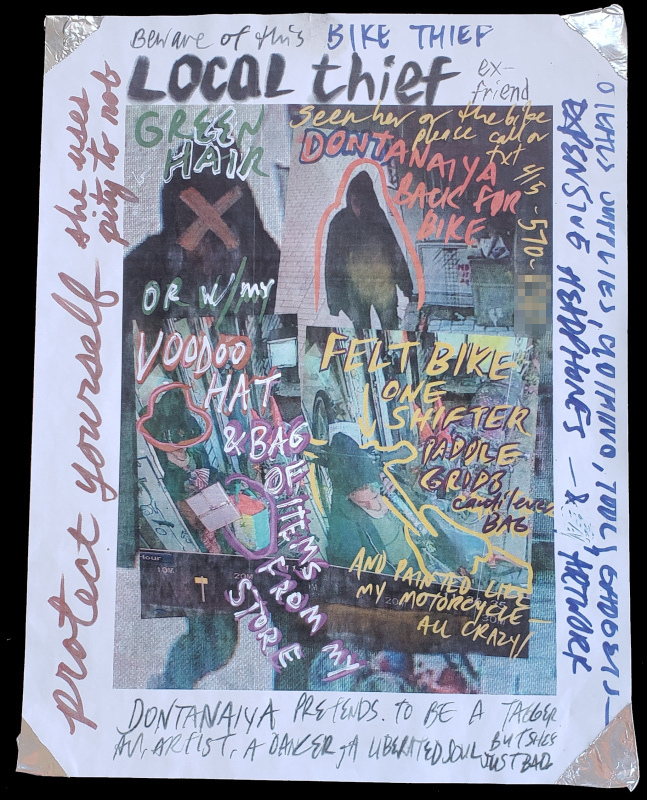 Beware of this BIKE THIEF
LOCAL thief
ex-
friend
GREEN
HAIR
OR W/ my
VOODOO
HAT
& BAG
OF ITEMS
FROM MY
STORE
Seen her or the bike
please call or
txt
415-570-
DONTANAIYA
BACK FOR
BIKE
FELT BIKE
ONE
SHIFTER
PADDLE
GRIPS
BAG
AND PAINTED LIKE
MY MOTORCYCLE—
ALL CRAZY!
protect yourself she uses
pity to rob
SUPPLIES, TOOLS, GADGETS—
EXPENSIVE HEADPHONES — & ARTWORK
DONTANAIYA PRETENDS TO BE A TAGGER
AN ARTIST, A DANCER, A LIBERATED SOUL BUT SHES
JUST BAD